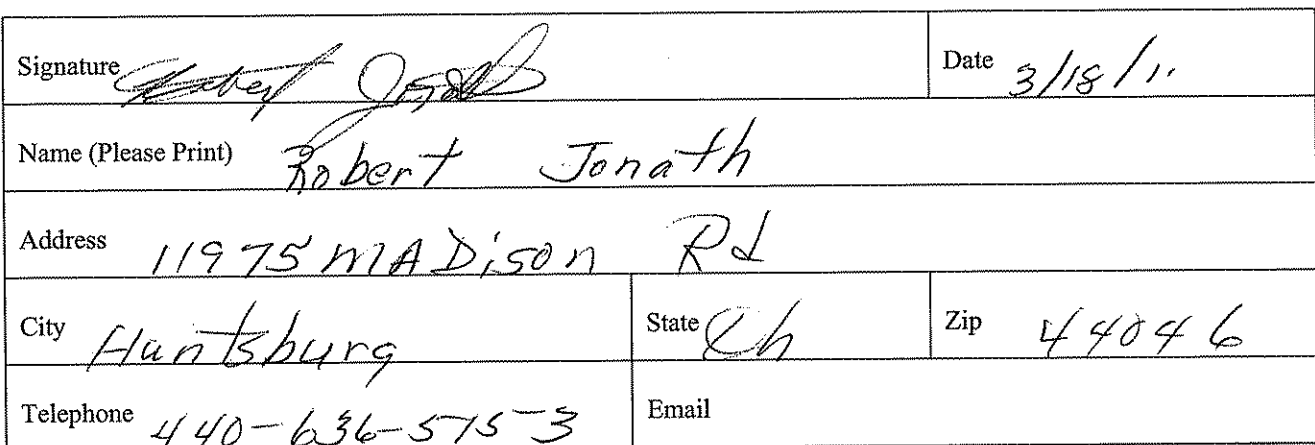 Signature Robert Jonath Date 3/18/11
Name (Please Print) Robert Jonath
Address 11975 MADison Rd
City Huntsburg State Oh Zip 44046
Telephone 440-636-5753 Email